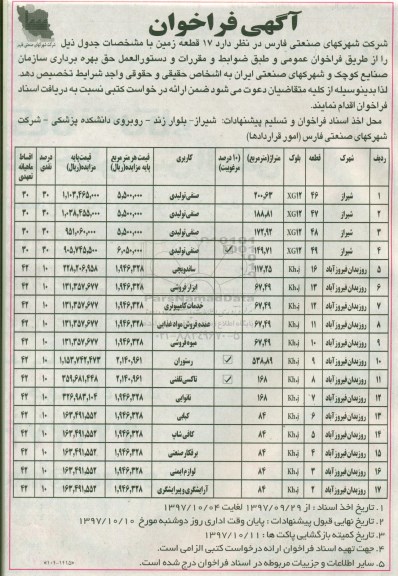 آگهی فراخوان
شرکت شهرکهای صنعتی فارس در نظر دارد ۱۷ قطعه زمین با مشخصات جدول ذیل
را از طریق فراخوان عمومی و طبق ضوابط و مقررات و دستورالعمل حق بهره برداری سازمان
صنایع کوچک و شهرکهای صنعتی ایران به اشخاص حقیقی و حقوقی واجد شرایط تخصیص دهد.
لذا بدینوسیله از کلیه متقاضیان دعوت می شود ضمن ارائه درخواست کتبی نسبت به دریافت اسناد
فراخوان اقدام نمایند.
محل اخذ اسناد فراخوان و تسلیم پیشنهادات: شیراز- بلوار زند - روبروی دانشکده پزشکی - شرکت
شهرکهای صنعتی فارس (امور قراردادها)
ردیف شهرک قطعه بلوک متراژ(مترمربع) (۱۰ درصد مرغوبیت) کاربری قیمت هر متر مربع پایه مزایده(ریال) قیمت پایه مزایده(ریال) درصد نقدی اقساط ماهیانه تعهدی
۱ شیراز ۴۶ XG12 ۲۰۰,۶۳ صنفی تولیدی ۵,۵۰۰,۰۰۰ ۱,۱۰۳,۴۶۵,۰۰۰ ۳۰ ۳۰
۲ شیراز ۴۷ XG12 ۱۸۸,۸۱ صنفی تولیدی ۵,۵۰۰,۰۰۰ ۱,۰۳۸,۴۵۵,۰۰۰ ۳۰ ۳۰
۳ شیراز ۴۸ XG12 ۱۷۲,۹۲ صنفی تولیدی ۵,۵۰۰,۰۰۰ ۹۵۱,۰۶۰,۰۰۰ ۳۰ ۳۰
۴ شیراز ۴۹ XG12 ۱۴۹,۷۱ صنفی تولیدی ۶,۰۵۰,۰۰۰ ۹۰۵,۷۴۵,۵۰۰ ۳۰ ۳۰
۵ روزبدان فیروزآباد ۱۶ Kh ۱۱۷,۲۵ ساندویچی ۱,۹۴۶,۳۲۸ ۲۲۸,۲۰۶,۹۵۸ ۱۰ ۴۲
۶ روزبدان فیروزآباد ۱۳ Kh ۶۷,۴۹ ابزار فروشی ۱,۹۴۶,۳۲۸ ۱۳۱,۳۵۷,۶۷۷ ۱۰ ۴۲
۷ روزبدان فیروزآباد ۱۲ Kh ۶۷,۴۹ خدمات کامپیوتری ۱,۹۴۶,۳۲۸ ۱۳۱,۳۵۷,۶۷۷ ۱۰ ۴۲
۸ روزبدان فیروزآباد ۱۱ Kh ۶۷,۴۹ عمده فروشی مواد غذایی ۱,۹۴۶,۳۲۸ ۱۳۱,۳۵۷,۶۷۷ ۱۰ ۴۲
۹ روزبدان فیروزآباد ۱۰ Kh ۶۷,۴۹ میوه فروشی ۱,۹۴۶,۳۲۸ ۱۳۱,۳۵۷,۶۷۷ ۱۰ ۴۲
۱۰ روزبدان فیروزآباد ۹ Kh ۵۳۸,۸۹ رستوران ۲,۱۴۰,۹۶۱ ۱,۱۵۳,۷۴۲,۴۷۳ ۱۰ ۴۲
۱۱ روزبدان فیروزآباد ۸ Kh ۱۶۸ تاکسی تلفنی ۲,۱۴۰,۹۶۱ ۳۵۹,۶۸۱,۴۴۸ ۱۰ ۴۲
۱۲ روزبدان فیروزآباد ۷ Kh ۱۶۸ نانوایی ۱,۹۴۶,۳۲۸ ۳۲۶,۹۸۳,۱۰۴ ۱۰ ۴۲
۱۳ روزبدان فیروزآباد ۶ Kh ۸۴ کبابی ۱,۹۴۶,۳۲۸ ۱۶۳,۴۹۱,۵۵۲ ۱۰ ۴۲
۱۴ روزبدان فیروزآباد ۵ Kh ۸۴ کافی شاپ ۱,۹۴۶,۳۲۸ ۱۶۳,۴۹۱,۵۵۲ ۱۰ ۴۲
۱۵ روزبدان فیروزآباد ۴ Kh ۸۴ برقکار صنعتی ۱,۹۴۶,۳۲۸ ۱۶۳,۴۹۱,۵۵۲ ۱۰ ۴۲
۱۶ روزبدان فیروزآباد ۳ Kh ۸۴ لوازم ایمنی ۱,۹۴۶,۳۲۸ ۱۶۳,۴۹۱,۵۵۲ ۱۰ ۴۲
۱۷ روزبدان فیروزآباد ۲ Kh ۸۴ آرایشگری و پیرایشگری ۱,۹۴۶,۳۲۸ ۱۶۳,۴۹۱,۵۵۲ ۱۰ ۴۲
۱. تاریخ اخذ اسناد : از ۱۳۹۷/۰۹/۲۹ لغایت ۱۳۹۷/۱۰/۰۴
۲. تاریخ نهایی قبول پیشنهادات : پایان وقت اداری روز دوشنبه مورخ ۱۳۹۷/۱۰/۱۰
۳. تاریخ کمیته بازگشایی پاکت ها : ۱۳۹۷/۱۰/۱۱
۴. جهت تهیه اسناد فراخوان ارائه درخواست کتبی الزامی است.
۵. سایر اطلاعات و جزییات مربوطه در اسناد فراخوان درج شده است.